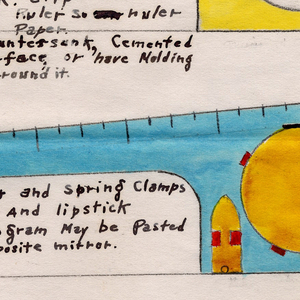 Ruler so Ruler
Paper.
untersunk, Cemented
rface, or have Molding
round it.
r and spring Clamps
And lipstick
gram May be Pasted
posite mirror.